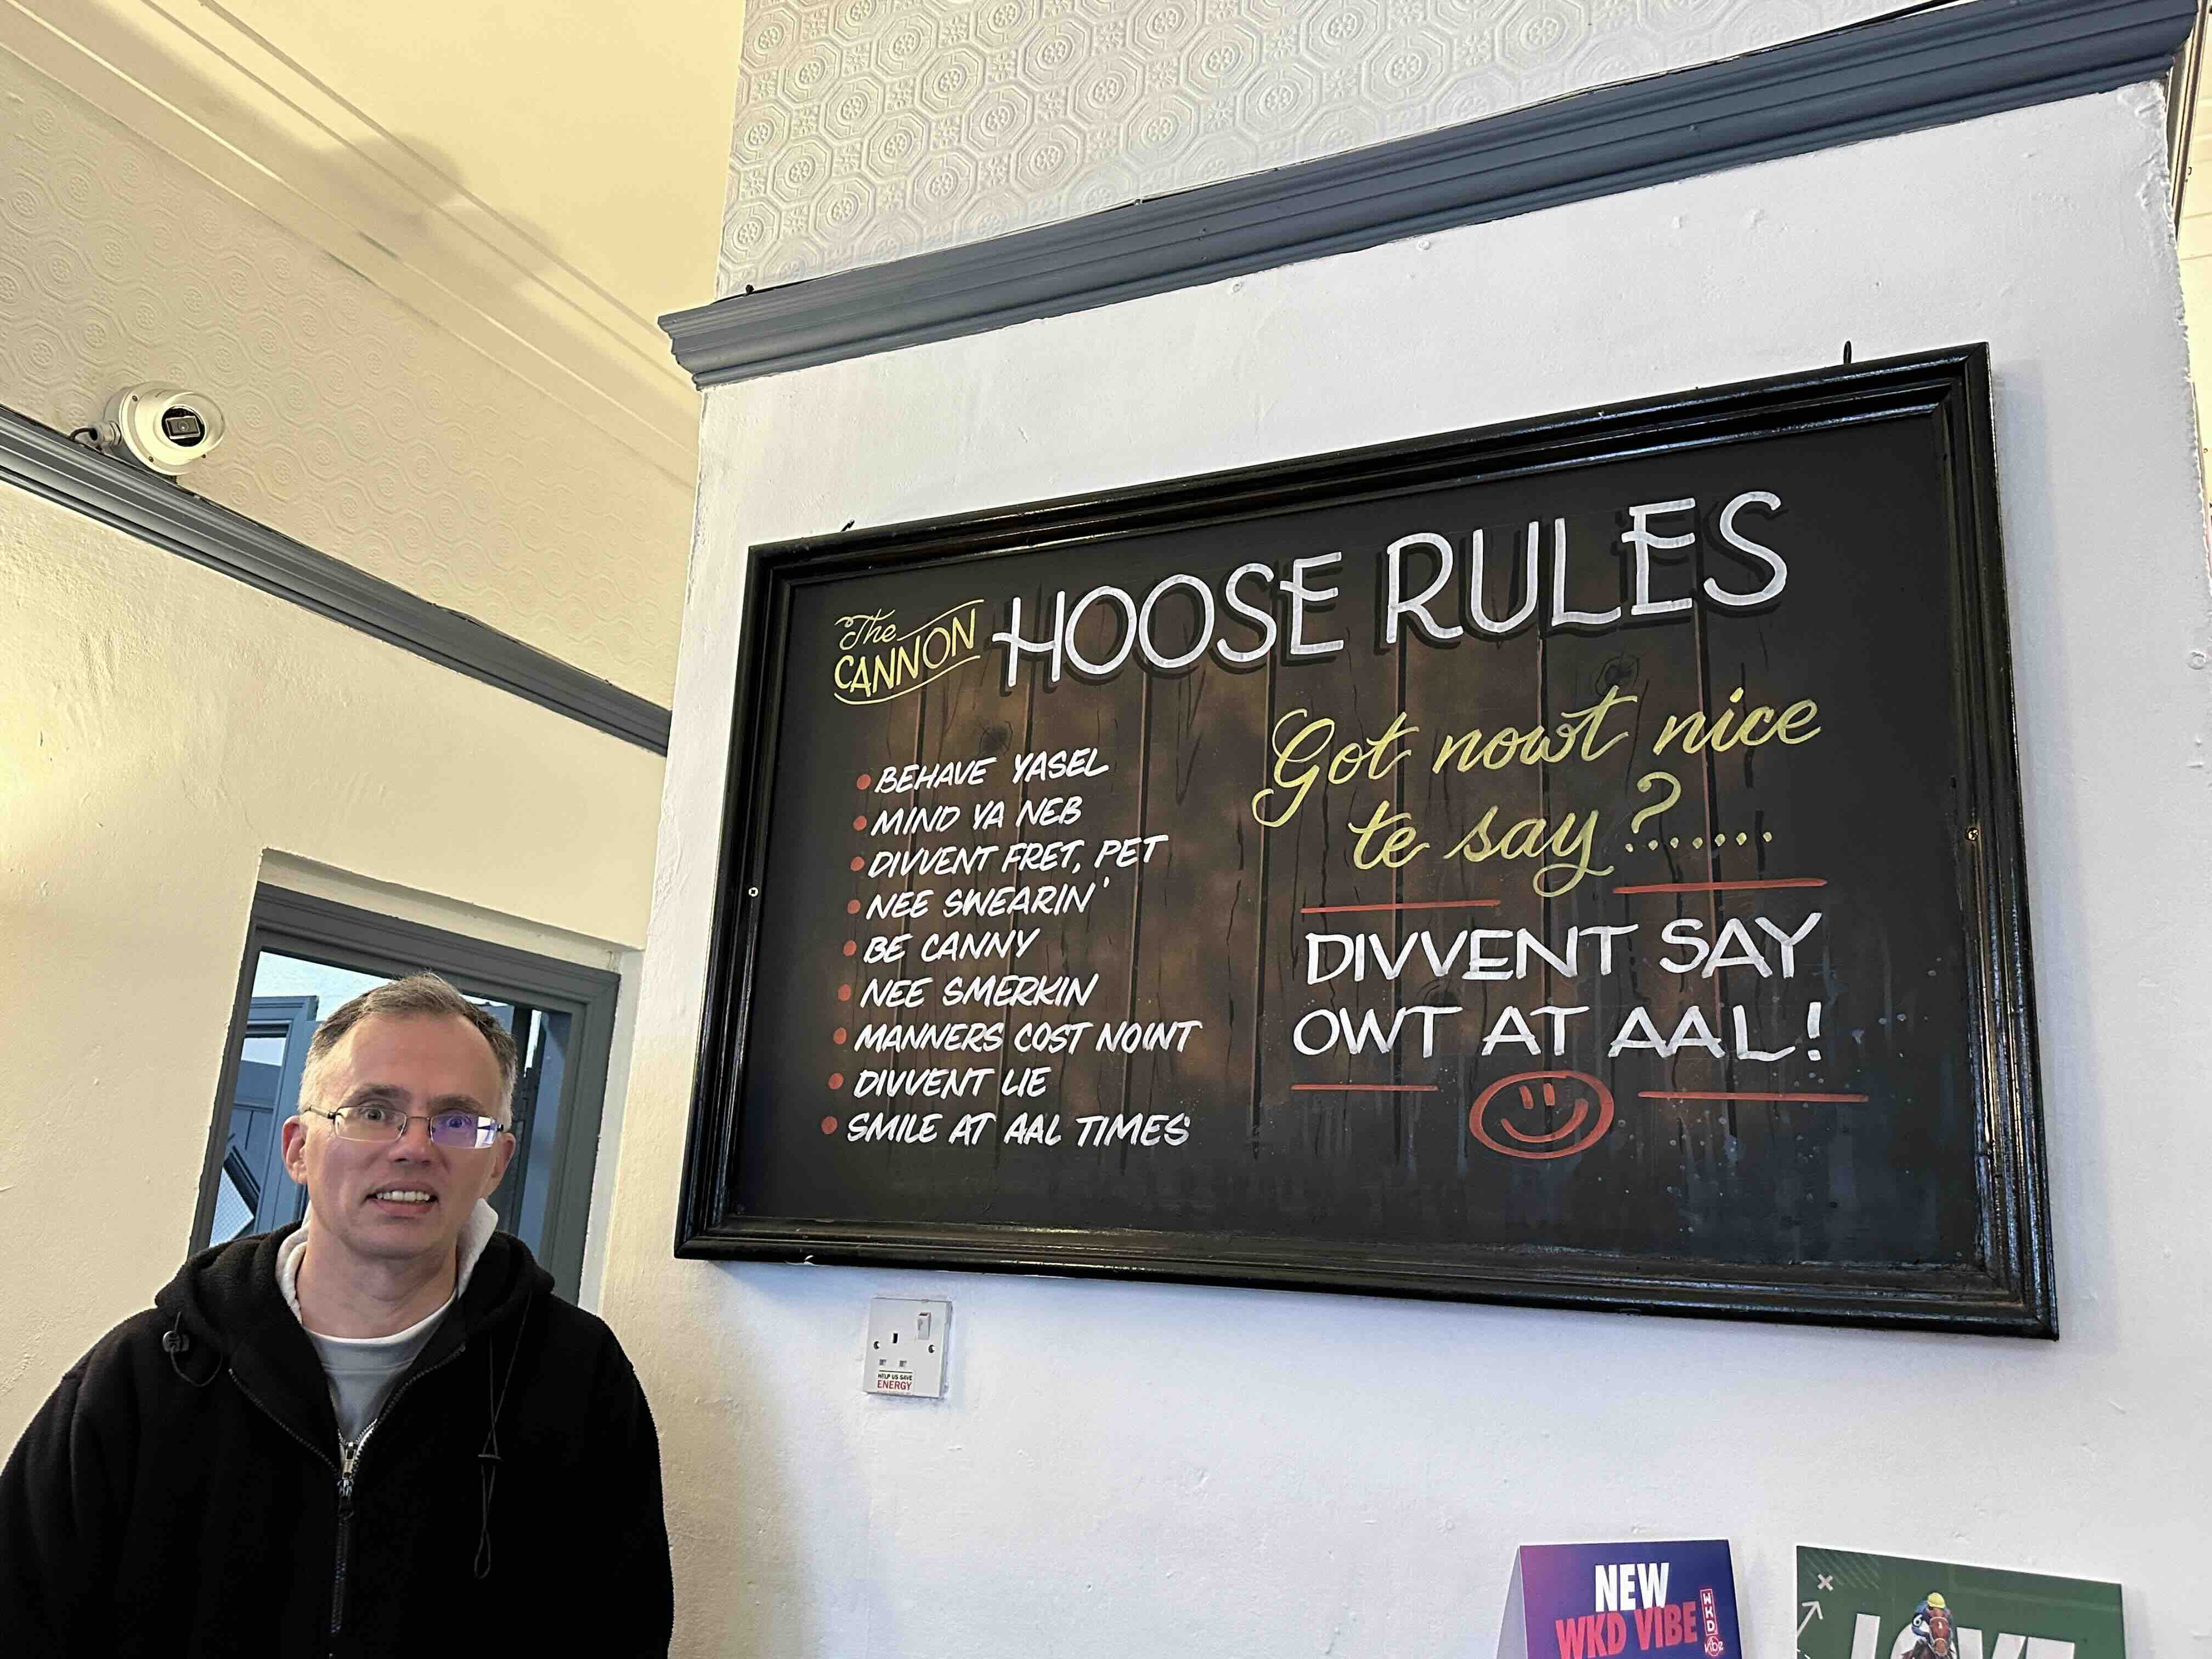 The
CANNON
HOOSE RULES
BEHAVE YASEL
MIND YA NEB
DIVVENT FRET, PET
NEE SWEARIN'
BE CANNY
NEE SMERKIN
MANNERS COST NOWT
DIVVENT LIE
SMILE AT AAL TIMES
Got nowt nice
te say?......
DIVVENT SAY
OWT AT AAL!
HELP US SAVE
ENERGY
NEW
WKD VIBE
WKD
vibe